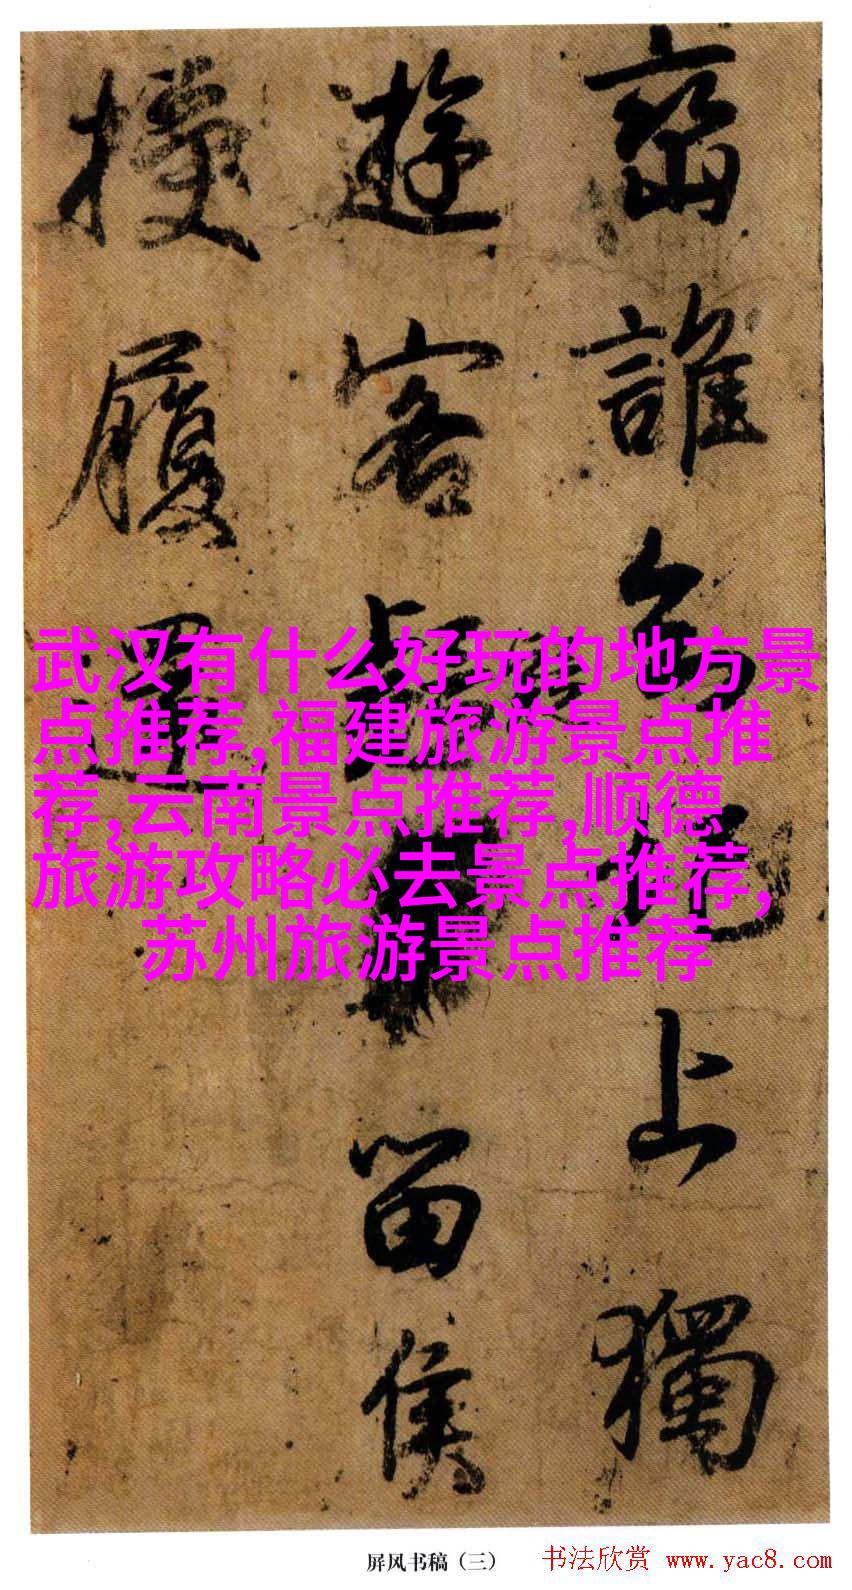 峦誰上獨
遊客留侯
履
武汉有什么好玩的地方景
点推荐,福建旅游景点推
荐,云南景点推荐,顺德
旅游攻略必去景点推荐,
苏州旅游景点推荐
屏风书稿（三） 书法欣赏 www.yac8.com